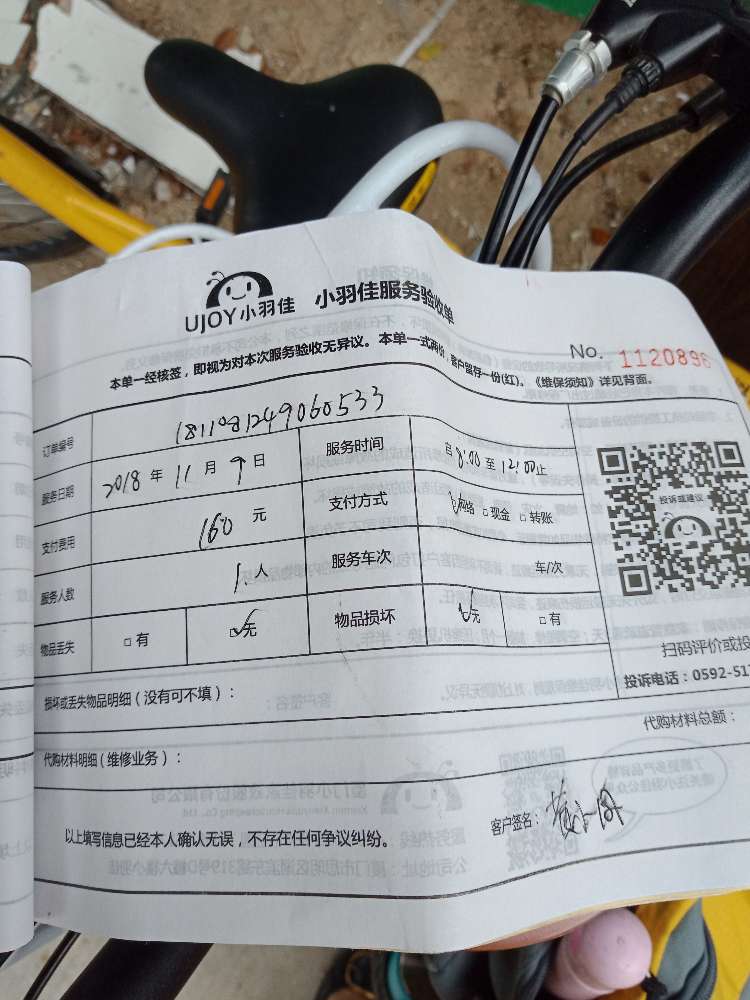 UJOY小羽佳 小羽佳服务验收单
No. 1120896
本单一经核签，即视为对本次服务验收无异议。本单一式两份，客户留存一份(红)。《维保须知》详见背面。
订单编号 181108124906053​3
服务日期 2018 年 11 月 9 日 服务时间 自 8:00 至 12:00 止
支付费用 160 元 支付方式 网络 □ 现金 □ 转账
服务人数 1. 人 服务车次 车/次
物品丢失 □ 有 ☑ 无 物品损坏 ☑ 无 □ 有
投诉或建议
扫码评价或投
投诉电话：0592-51
损坏或丢失物品明细（没有可不填）：
代购材料明细（维修业务）： 代购材料总额：
以上填写信息已经本人确认无误，不存在任何争议纠纷。 客户签名：